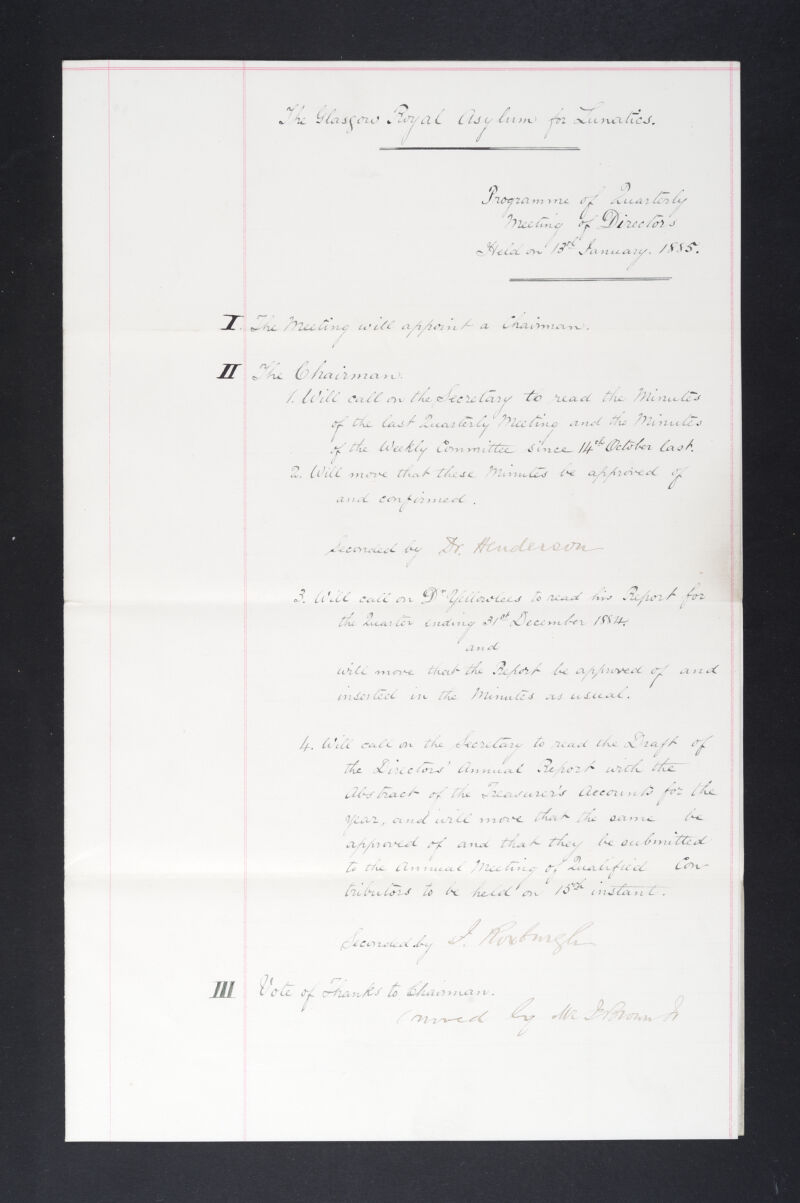 The Glasgow Royal Asylum for Lunatics.
Programme of Quarterly
Meeting of Directors
Held on 13th January. 1885.
I. The Meeting will appoint a Chairman.
II The Chairman.
1. Will call on the Secretary to read the Minutes
of the last Quarterly Meeting and the Minutes
of the Weekly Committee since 14th October last.
2. Will move that these Minutes be approved of
and confirmed.
Seconded by Dr. Henderson
3. Will call on Dr Yellowlees to read his Report for
the Quarter ending 31st December 1884.
and
will move that the Report be approved of and
inserted in the Minutes as usual.
4. Will call on the Secretary to read the Draft of
the Directors' Annual Report with the
Abstract of the Treasurer's Accounts for the
year, and will move that the same be
approved of and that they be submitted
to the Annual Meeting of Qualified Con-
tributors to be held on 15th instant.
Seconded by J. Roxburgh
III Vote of Thanks to Chairman.
moved by Mr J Brown Jr